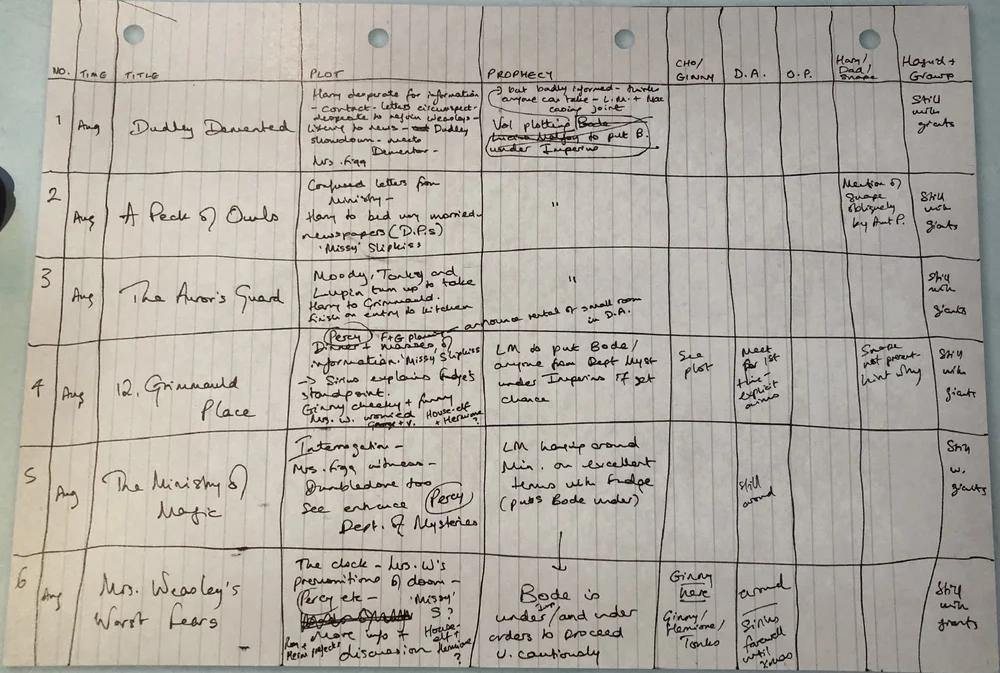 NO.
TIME
TITLE
PLOT
PROPHECY
CHO/
GINNY
D.A.
O.P.
Harry/
Dad/
Snape
Hagrid +
Grawp
1
Aug
Dudley Demented
Harry desperate for information
- contact - letters circumspect -
desperate to rejoin Weasleys -
listening to news - Dudley
showdown - meets
Dementor -
Mrs. Figg
but badly informed - thinks
anyone can take - L.M. + Mac
casing joint
Vol plotting Bode
Lucius Malfoy to put B.
under Imperius
Still
with
giants
2
Aug
A Peck of Owls
Confused letters from
Ministry -
Harry to bed very worried -
newspapers (D.P.s)
'Missy' Slipkiss
"
Mention of
Snape
obliquely
by Aunt P.
Still
with
giants
3
Aug
The Auror's Guard
Moody, Tonks and
Lupin turn up to take
Harry to Grimmauld.
finish on entry to kitchen
"
Still
with
giants
4
Aug
12, Grimmauld
Place
Percy F+G plans - announce rental of small room
in D.A.
Dinner + masses of
information. 'Missy' Slipkiss
→ Sirius explains Fudge's
standpoint.
Ginny cheeky + funny
Mrs. W. worried
George + V.
House-elf
+ Hermione
?
LM to put Bode/
anyone from Dept Myst
under Imperius if get
chance
See
plot
Meet
for 1st
time -
explicit
aims
Snape
not present
hint why
Still
with
giants
5
Aug
The Ministry of
Magic
Interrogation -
Mrs. Figg witness -
Dumbledore too
See entrance
Percy
Dept. of Mysteries
LM hanging around
Min. on excellent
terms with Fudge
(puts Bode under)
still
around
Still
w.
giants
6
Aug
Mrs. Weasley's
Worst Fears
The clock - Mrs. W's
premonitions of doom -
Percy etc - 'Missy'
S?
more info +
discussion
Ron +
Herm prefects
House-
elf +
Hermione
?
Bode is
under Imp/and under
orders to proceed
v. cautiously
Ginny
here
Ginny/
Hermione/
Tonks
around
Sirius
farewell
until
Xmas
Still
with
giants